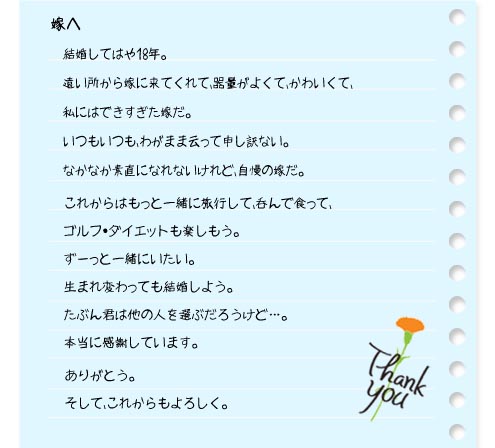 嫁へ
結婚してはや18年。
遠い所から嫁に来てくれて、器量がよくて、かわいくて、
私にはできすぎた嫁だ。
いつもいつも、わがまま云って申し訳ない。
なかなか素直になれないけれど、自慢の嫁だ。
これからはもっと一緒に旅行して、呑んで食って、
ゴルフ・ダイエットも楽しもう。
ずーっと一緒にいたい。
生まれ変わっても結婚しよう。
たぶん君は他の人を選ぶだろうけど…。
本当に感謝しています。
ありがとう。
そして、これからもよろしく。
Thank
you